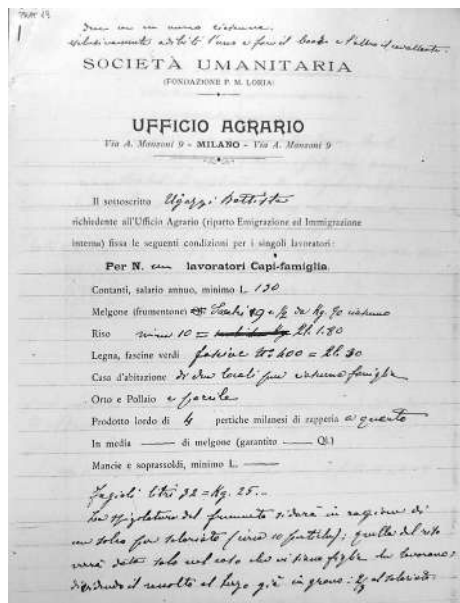 esclusivamente adibiti l'uno a fare il
SOCIETÀ UMANITARIA
(FONDAZIONE P. M. LORIA)
UFFICIO AGRARIO
Via A. Manzoni 9 - MILANO - Via A. Manzoni 9
Il sottoscritto Ugazzi Battista
richiedente all'Ufficio Agrario (riparto Emigrazione ed Immigrazione
interna) fissa le seguenti condizioni per i singoli lavoratori:
Per N. un lavoratori Capi-famiglia.
Contanti, salario annuo, minimo L. 130
Melgone (frumentone) Sacchi 19 e ½ da Kg. 90 ciascuno
Riso mine 10 = Ql. 1.80
Legna, fascine verdi fascine N° 400 = Ql. 30
Casa d'abitazione di due locali per ciascuna famiglia
Orto e Pollaio e porcile
Prodotto lordo di 4 pertiche milanesi di zapperia a quarto
In media — di melgone (garantito — Ql.)
Mancie e soprassoldi, minimo L. —
Fagioli litri 32 = Kg. 25..
La spigolatura del frumento si darà in ragione di
un solco per salariato (circa 10 pertiche); quella del riso
verrà data solo nel caso che vi siano figlie che lavorano;
dividendo il raccolto al terzo già in grano: ⅔ al salariato.